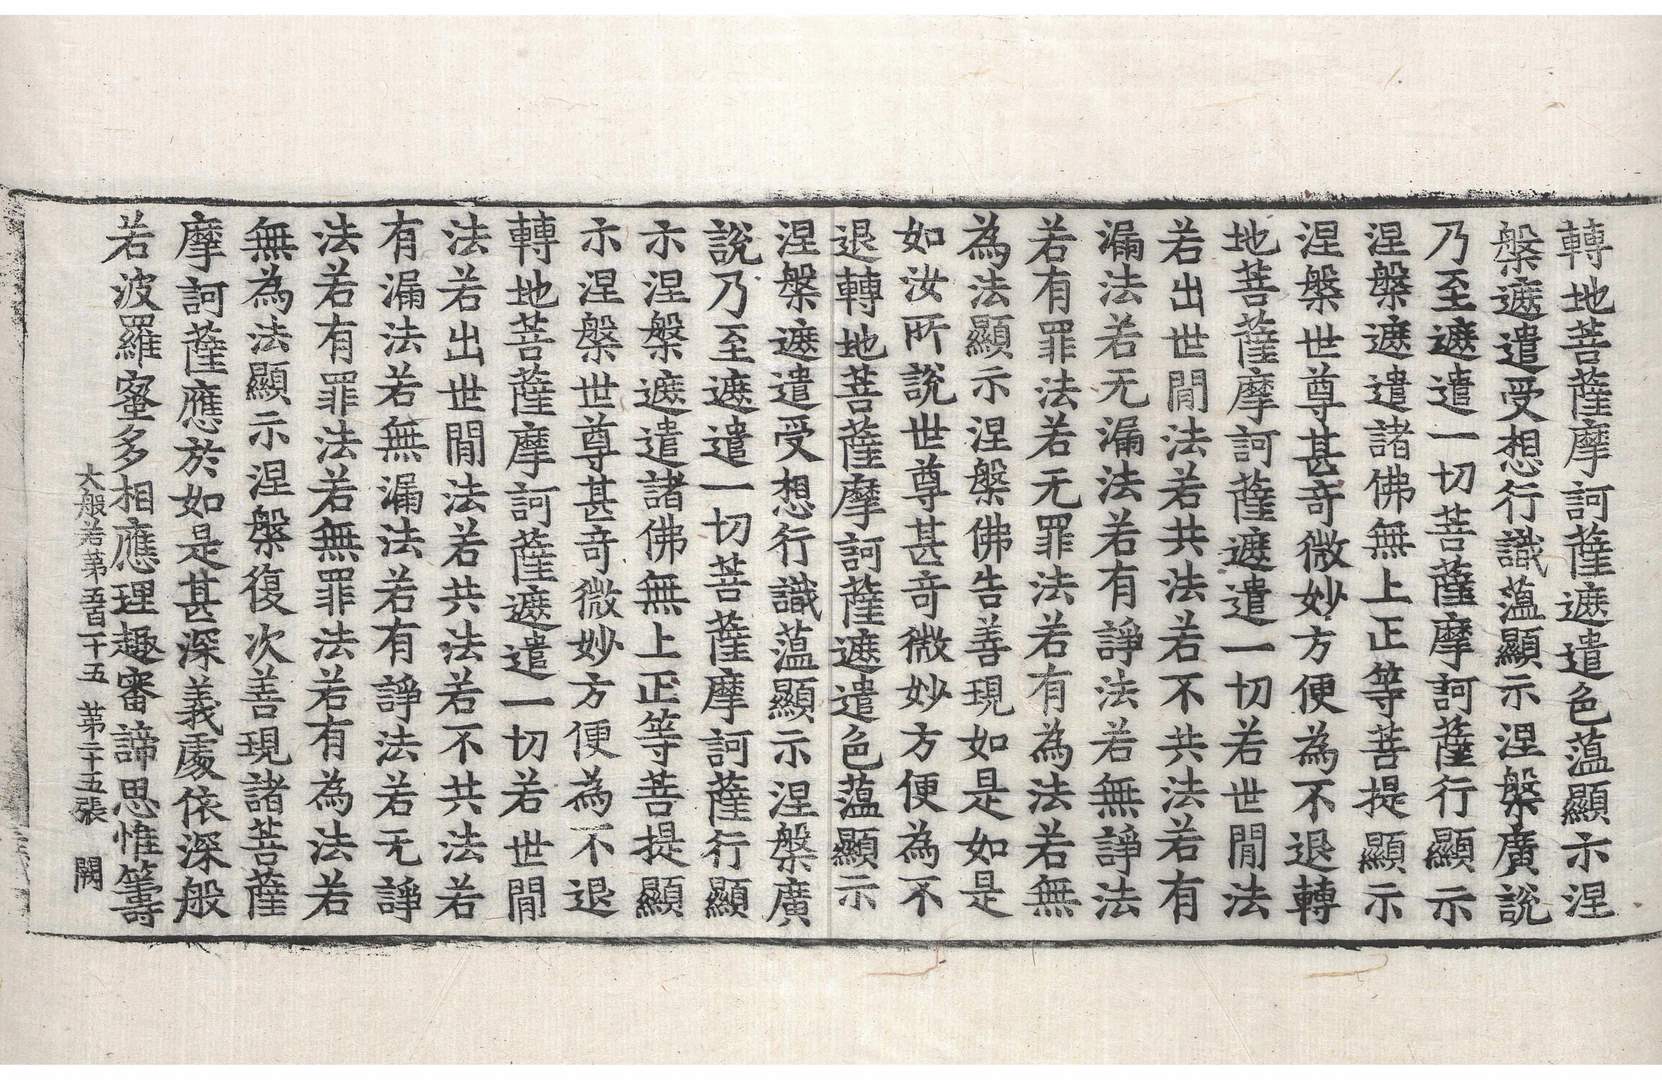 轉地菩薩摩訶薩遮遣色蘊顯示涅
槃遮遣受想行識蘊顯示涅槃廣說
乃至遮遣一切菩薩摩訶薩行顯示
涅槃遮遣諸佛無上正等菩提顯示
涅槃世尊甚奇微妙方便為不退轉
地菩薩摩訶薩遮遣一切若世閒法
若出世閒法若共法若不共法若有
漏法若无漏法若有諍法若無諍法
若有罪法若无罪法若有為法若無
為法顯示涅槃佛告善現如是如是
如汝所說世尊甚奇微妙方便為不
退轉地菩薩摩訶薩遮遣色蘊顯示
涅槃遮遣受想行識蘊顯示涅槃廣
說乃至遮遣一切菩薩摩訶薩行顯
示涅槃遮遣諸佛無上正等菩提顯
示涅槃世尊甚奇微妙方便為不退
轉地菩薩摩訶薩遮遣一切若世閒
法若出世閒法若共法若不共法若
有漏法若無漏法若有諍法若无諍
法若有罪法若無罪法若有為法若
無為法顯示涅槃復次善現諸菩薩
摩訶薩應於如是甚深義處依深般
若波羅蜜多相應理趣審諦思惟籌
大般若第五百十五 第二十五張 闕